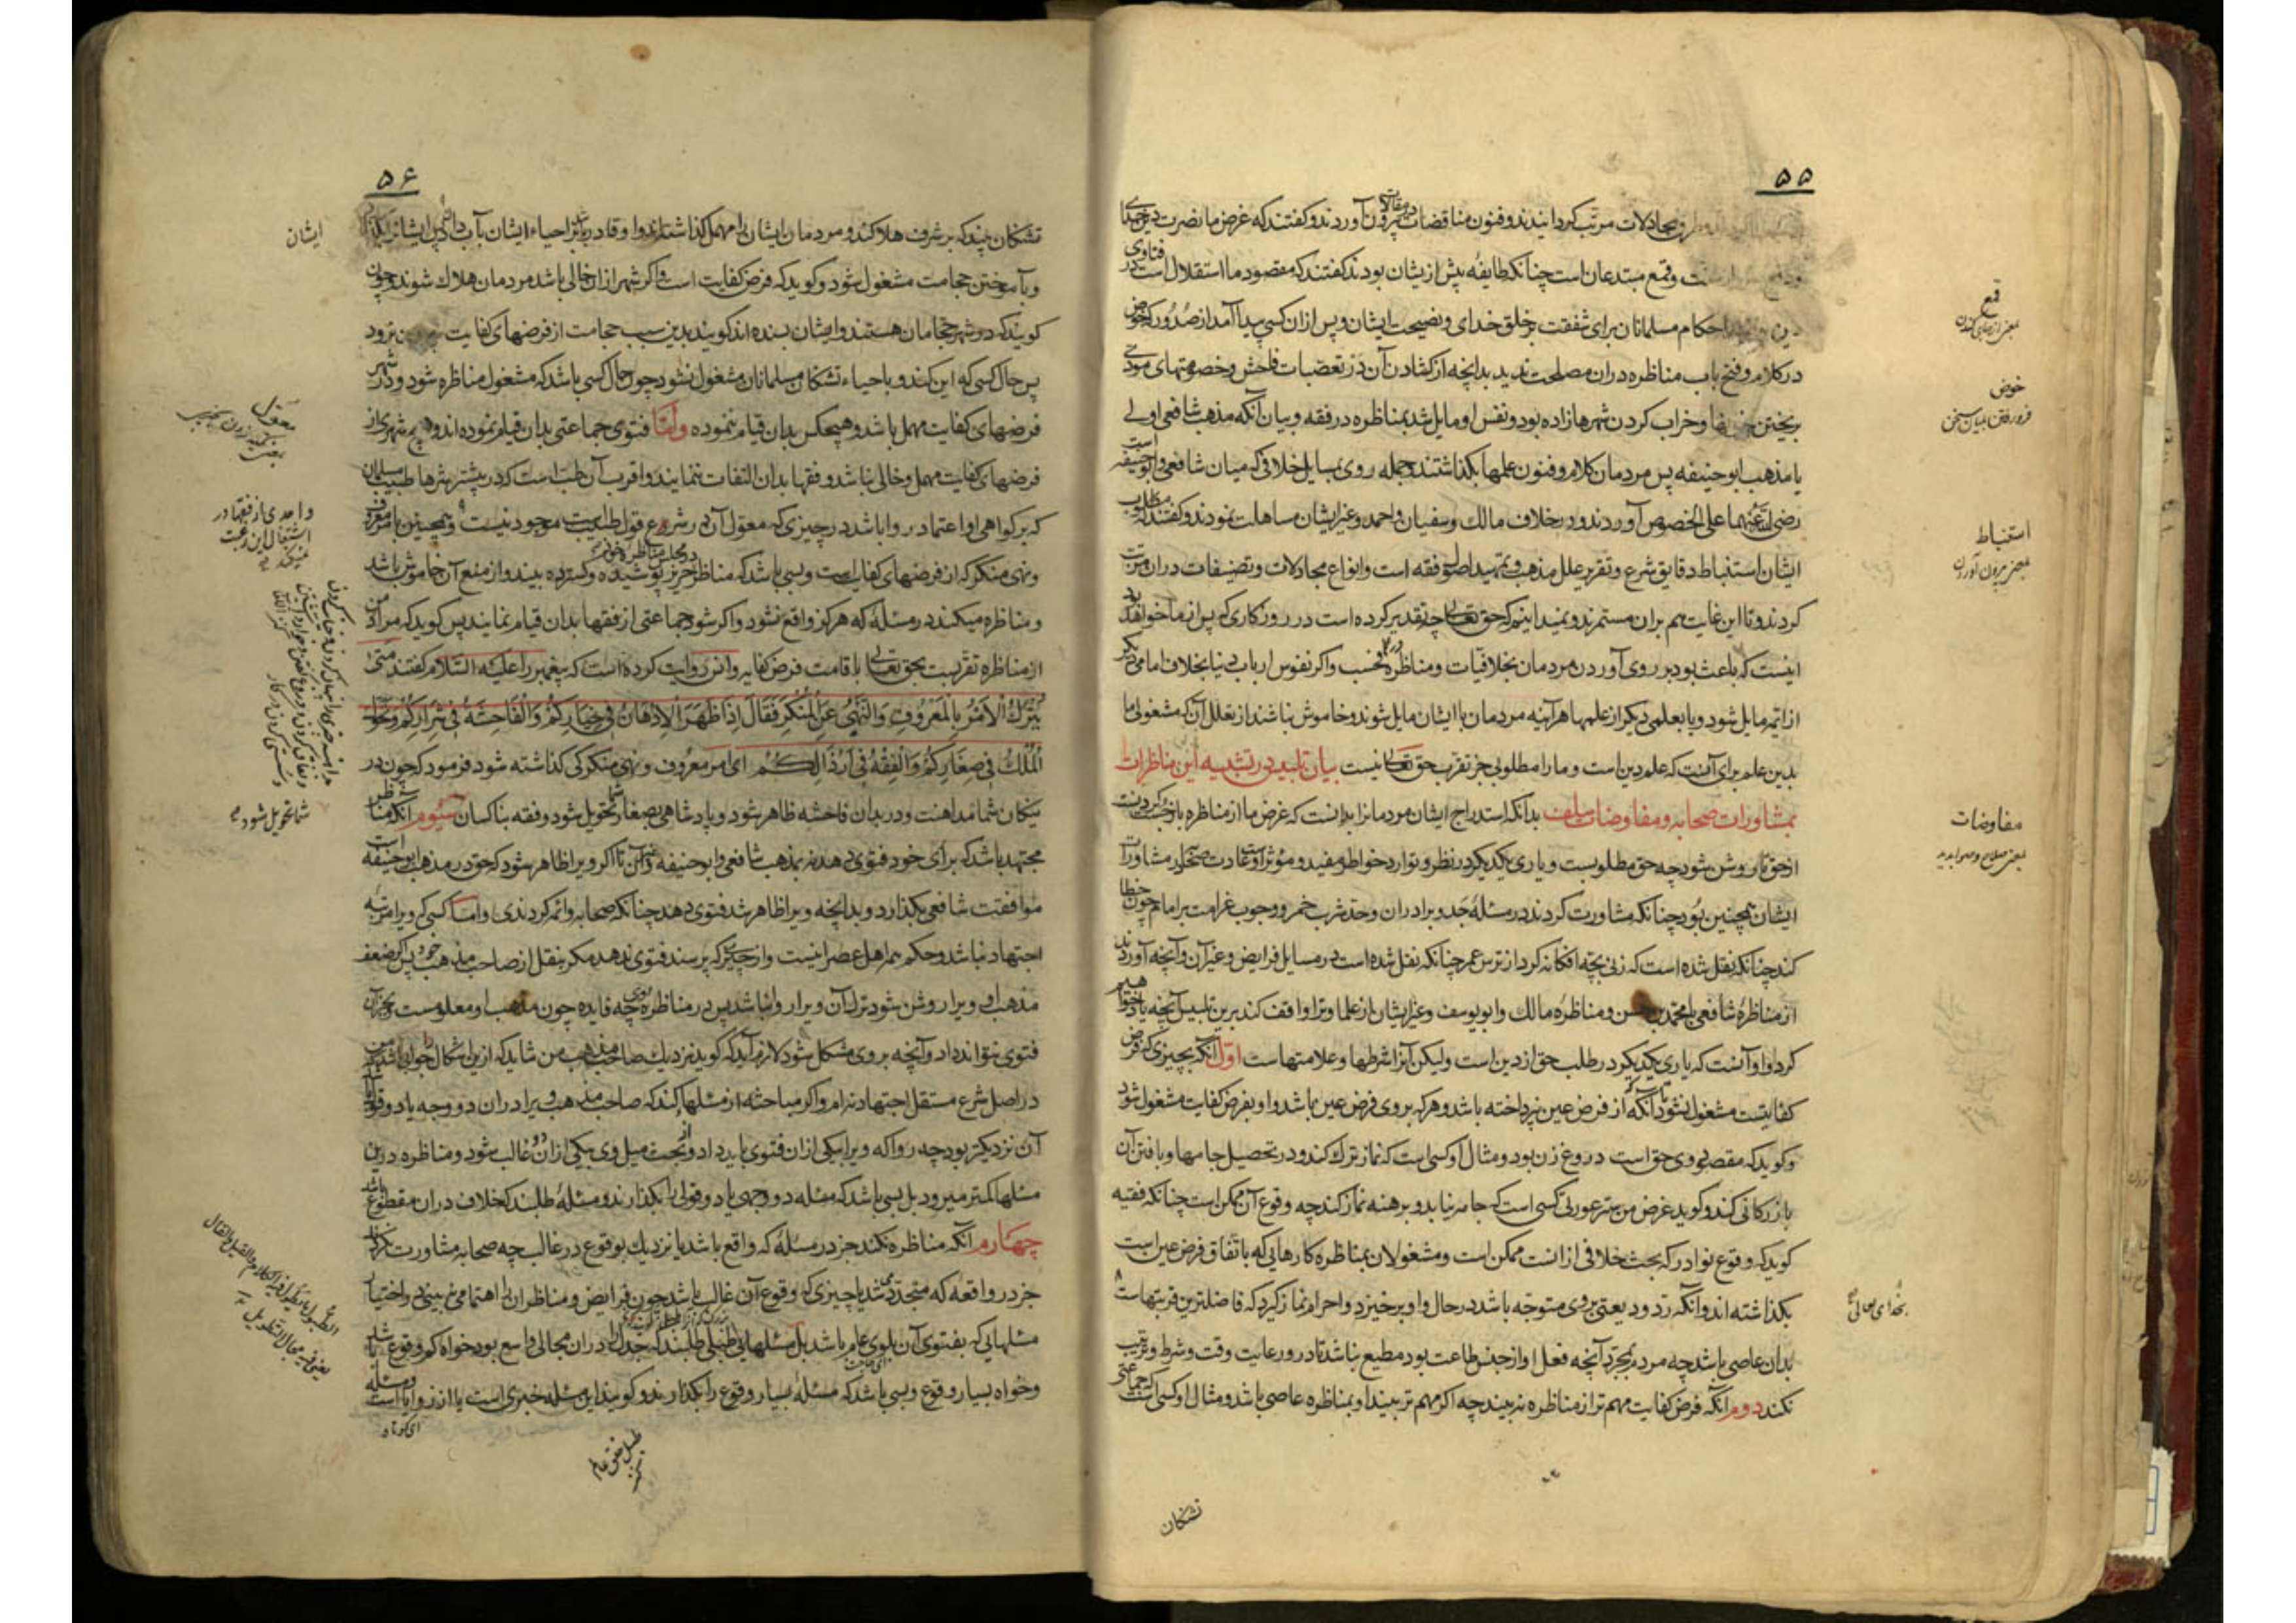 ۵۵
و طرق مجادلات مرتب گردانیدند و فنون مناقضات در مقالات بیرون آوردند و گفتند که غرض ما نصرت دین خدای
و قمع مبتدعان است چنانکه طایفه پیش ازیشان بودند گفتند که مقصود ما استقلال است در فتاوی
احکام مسلمانان برای شفقت بر خلق خدای و نصیحت ایشان و پس ازان کسی پیدا آمد از صدور که خوض
در کلام و فتح باب مناظره دران مصلحت ندید بدانچه از گشادن آن در تعصبات فاحش و خصومتهای مودی
بریختن خونها و خراب کردن شهرها زاده بود و نفس او مایل شد بمناظره در فقه و بیان آنکه مذهب شافعی اولی
یا مذهب ابو حنیفه پس مردمان کلام و فنون علمها بگذاشتند و جمله روی بمسایل خلافی که میان شافعی و ابو حنیفه است
رضی الله عنهما علی الخصوص آوردند و در خلاف مالک و سفیان و احمد و غیر ایشان مساهلت نمودند و گفتند که مطلوب
ایشان استنباط دقایق شرع و تقریر علل مذهب و تمهید اصول فقه است و انواع مجادلات و تصنیفات دران مرتب
کردند و تا این غایت هم بران مستمرند و نمیدانیم که حق تعالی چه تقدیر کرده است در روزگاری که پس از ما خواهد بود
اینست که باعث بود بر روی آوردن مردمان بخلافیات و مناظره در و فحسب و اگر نفوس ارباب دنیا بخلاف امامی دیگر
از ائمه مایل شود و یا بعلمی دیگر از علمها هر آینه مردمان با ایشان مایل شوند و خاموش نباشند از تعلل آن که مشغولی ما
بدین علم برای آنست که علم دین است و ما را مطلوبی جز تقرب حق تعالی نیست بیان تلبیس در تشبیه این مناظرات
بمشاورات صحابه و مفاوضات سلف بدانکه استدراج ایشان مردمانرا بدانست که غرض ما از مناظره باز جستن کردنست
از حق تا روشن شود چه حق مطلوبست و یاری یکدیگر در نظر و توارد خواطر مفید و موثر است و عادت صحابه در مشاورات
ایشان همچنین بود چنانکه مشاورت کردند در مسئله جد و برادران و حد شرب خمر و وجوب غرامت بر امام چون خطا
کند چنانکه نقل شده است که زنی بچه افگانه کرد از ترس عمر چنانکه نقل شده است در مسایل فرایض و غیر آن و آنچه آوردند
از مناظره شافعی با محمد بن حسن و مناظره مالک و ابو یوسف و غیر ایشان از علما و ترا واقف کند برین تلبیس آنچه یاد خواهیم
کرد و او آنست که یاری یکدیگر در طلب حق از دین است ولیکن آنرا شرطها و علامتهاست اول آنکه بچیزی که فرض
کفایتست مشغول نشود تا آنگه که از فرض عین نپرداخته باشد و هر که بر وی فرض عین باشد و او بفرض کفایت مشغول شود
و گوید که مقصد وی حق است دروغ زن بود و مثال او کسی است که نماز ترک کند و در تحصیل جامها و بافتن آن
بازرگانی کند و گوید غرض من ستر عورت کسی است که جامه نیابد و برهنه نماز کند چه وقوع آن ممکن است چنانکه فقیه
گوید که وقوع نوادر که بحث خلافی از آنست ممکن است و مشغولان بمناظره کارهایی که باتفاق فرض عین است
بگذاشته اند و آنکه رد ودیعتی بروی متوجه باشد در حال و او برخیزد و احرام نماز گیرد که فاضلترین قربتهاست
بدان عاصی باشد چه مردم بمجرد آنچه فعل او از جنس طاعت بود مطیع نباشد تا درو رعایت وقت و شرط و ترتیب
نکند دوم آنکه فرض کفایت مهم تر از مناظره نه بیند چه اگر مهم تر بیند او بمناظره عاصی باشد و مثال او کسی است که جماعتی
تشنگان
قمع
خوض
فرو رفتن بمیان سخن
استنباط
بمعنی بیرون آوردن
مفاوضات
بخدای تعالی
۵۶
تشنگان بیند که بر شرف هلاکند و مردمان ایشان را مهمل گذاشته اند و او قادر باشد بر احیاء ایشان بآب دادن ایشانرا بگذارد
و بآموختن حجامت مشغول شود و گوید که فرض کفایت است و اگر شهر ازان خالی باشد مردمان هلاک شوند و چون
گویند که در شهر حجامان هستند و ایشان بسنده اند گویند بدین سبب حجامت از فرضهای کفایت بیرون نرود
پس حال کسی که این کند و باحیاء تشنگان مسلمانان مشغول نشود چون حال کسی باشد که مشغول مناظره شود و در شهر
فرضهای کفایت مهمل باشد و هیچکس بدان قیام ننموده و اما فتوی جماعتی بدان قیام نموده اند و هیچ شهری از
فرضهای کفایت مهمل و خالی نباشد و فقها بدان التفات ننمایند و اقرب آن طب است که در بیشتر شهرها طبیب مسلمان
که بر گواهی او اعتماد روا باشد در چیزی که معول آن در شروع قول طبیب است موجود نیست و همچنین امر معروف
و نهی منکر که از فرضهای کفایست و بسی باشد که مناظر در مجلس مناظره خود حریر پوشیده و گسترده بیند و از منع آن خاموش باشد
و مناظره میکند در مسئله که هرگز واقع نشود و اگر شود جماعتی از فقها بدان قیام نمایند پس گوید که مراد من
از مناظره تقربست بحق تعالی باقامت فرض کفایه و انس روایت کرده است که پیغمبر را علیه السلام گفتند متی
یترک الامر بالمعروف والنهی عن المنکر فقال اذا ظهر الادهان فی خیارکم والفاحشة فی شرارکم وتحول
الملک فی صغارکم والفقه فی ارذالکم ای امر معروف و نهی منکر کی گذاشته شود فرمود که چون در
نیکان شما مداهنت و در بدان فاحشه ظاهر شود و پادشاهی بصغار شما تحویل شود و فقه بناکسان سیوم آنکه مناظر
مجتهد باشد که برای خود فتوی دهد نه بمذهب شافعی و ابو حنیفه و غیر آن تا اگر ویرا ظاهر شود که حق در مذهب ابو حنیفه است
موافقت شافعی بگذارد و بدانچه ویرا ظاهر شد فتوی دهد چنانکه صحابه و ائمه کردندی و اما کسی که ویرا مرتبه
اجتهاد نباشد و حکم همه اهل عصر اینست و از چیزی که پرسند فتوی ندهد مگر بنقل از صاحب مذهب خود پس اگر ضعف
مذهب او ویرا روشن شود ترک آن ویرا روا نباشد پس در مناظره ویرا چه فایده چون مذهب او معلومست و بجز آن
فتوی نتواند داد و آنچه بر وی مشکل شود لازم آید که گوید نزدیک صاحب مذهب من شاید که ازین اشکال جوابی باشد که من
در اصل شرع مستقل اجتهاد نه ام و اگر مباحثه از مسئلها کند که صاحب مذهب ویرا دران دو وجه یا دو قول باشد
آن نزدیکتر بود چه روا که ویرا بیکی ازان فتوی باید داد و از بحث میل وی بیکی ازان دو غالب شود و مناظره درین
مسئلها کمتر میرود بل بسی باشد که مسئله دو وجهی یا دو قولی را بگذارند و مسئله طلبند که خلاف دران مقطوع باشد
چهارم آنکه مناظره نکند جز در مسئله که واقع باشد یا نزدیک بوقوع در غالب چه صحابه مشاورت نکردند
جز در واقعه که متجدد می شد یا چیزی که وقوع آن غالب باشد چون فرایض و مناظران را اهتمامی نه بینی در اختیار
مسئلهایی که بفتوی آن بلوی عام باشد بل مسئلهایی طبلی طلبند که جدل را دران مجالی واسع بود خواه کم وقوع باشد
و خواه بسیار وقوع و بسی باشد که مسئله بسیار وقوع را بگذارند و گویند این مسئله خبری است یا از زوایا است و مسئله
ایشان
معول
واحدی از فقها در
اشتغال این رغبت
نمیکند
شما تحویل شود